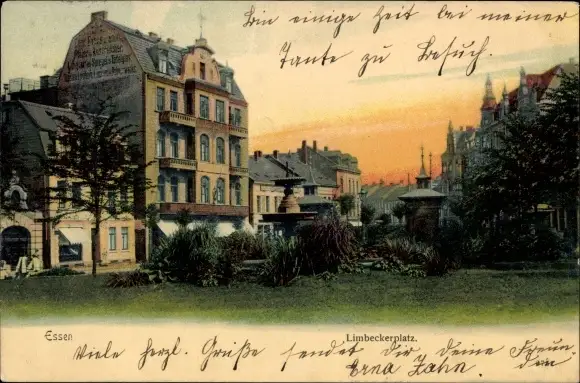 Bin einige Zeit bei meiner
Tante zu Besuch.
Essen
Limbeckerplatz.
Viele herzl. Grüße sendet dir deine Freun
din
Erna Jahn.